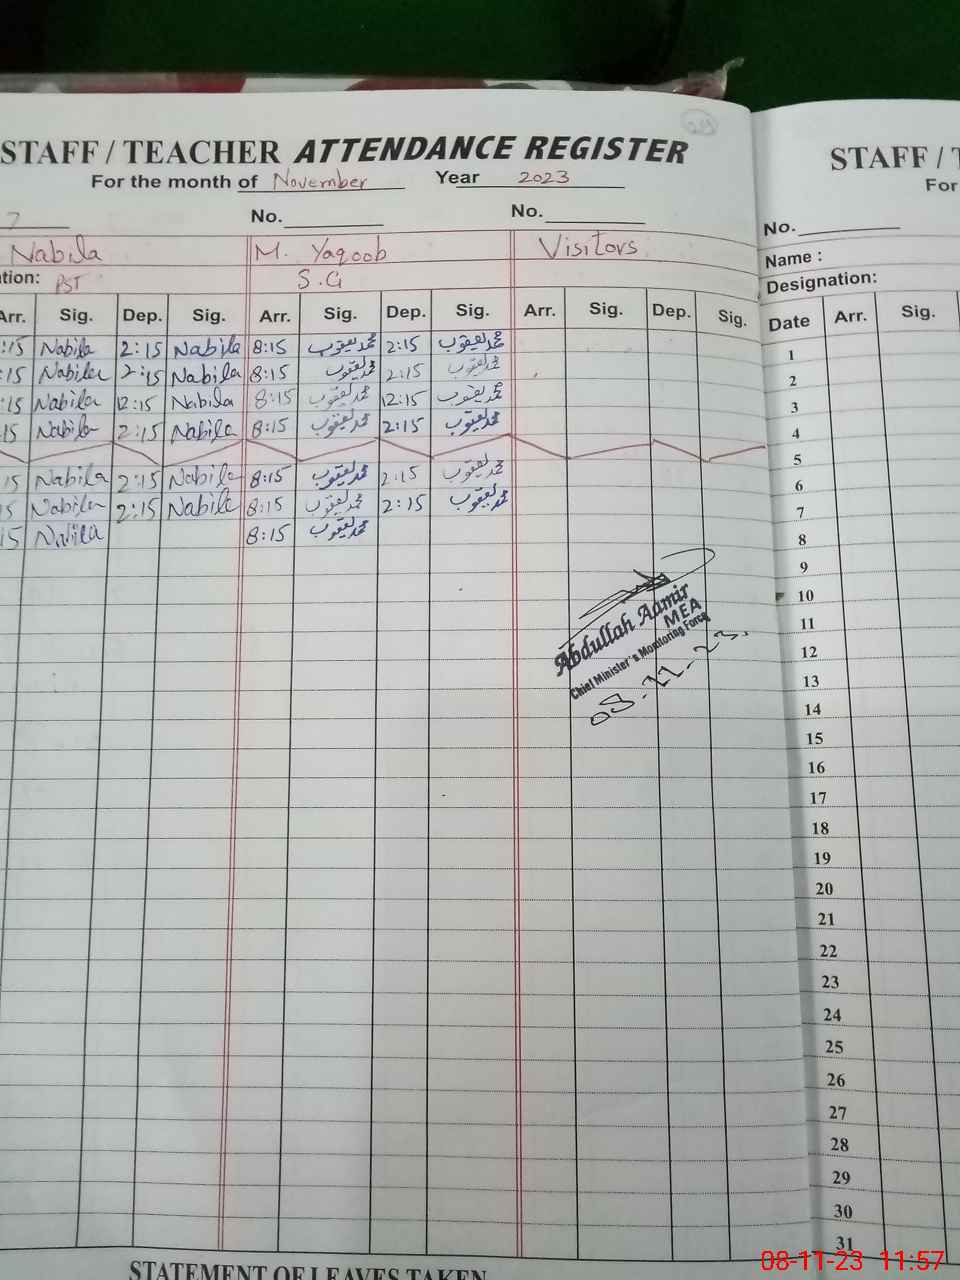 219
STAFF / TEACHER ATTENDANCE REGISTER
For the month of November Year 2023
7 No. No.
Nabila M. Yaqoob Visitors
tion: PST S.G
Arr. Sig. Dep. Sig. Arr. Sig. Dep. Sig. Arr. Sig. Dep. Sig.
:15 Nabila 2:15 Nabila 8:15 محمد یعقوب 2:15 محمد یعقوب
:15 Nabila 2:15 Nabila 8:15 محمد یعقوب 2:15 محمد یعقوب
:15 Nabila 12:15 Nabila 8:15 محمد یعقوب 12:15 محمد یعقوب
15 Nabila 2:15 Nabila 8:15 محمد یعقوب 2:15 محمد یعقوب
15 Nabila 2:15 Nabila 8:15 محمد یعقوب 2:15 محمد یعقوب
15 Nabila 2:15 Nabila 8:15 محمد یعقوب 2:15 محمد یعقوب
15 Nabila 8:15 محمد یعقوب
Abdullah Aamir
MEA
Chief Minister's Monitoring Force
08-11-23.
STATEMENT OF LEAVES TAKEN
STAFF / T
For
No.
Name :
Designation:
Date Arr. Sig.
1
2
3
4
5
6
7
8
9
10
11
12
13
14
15
16
17
18
19
20
21
22
23
24
25
26
27
28
29
30
31
08-11-23 11:57